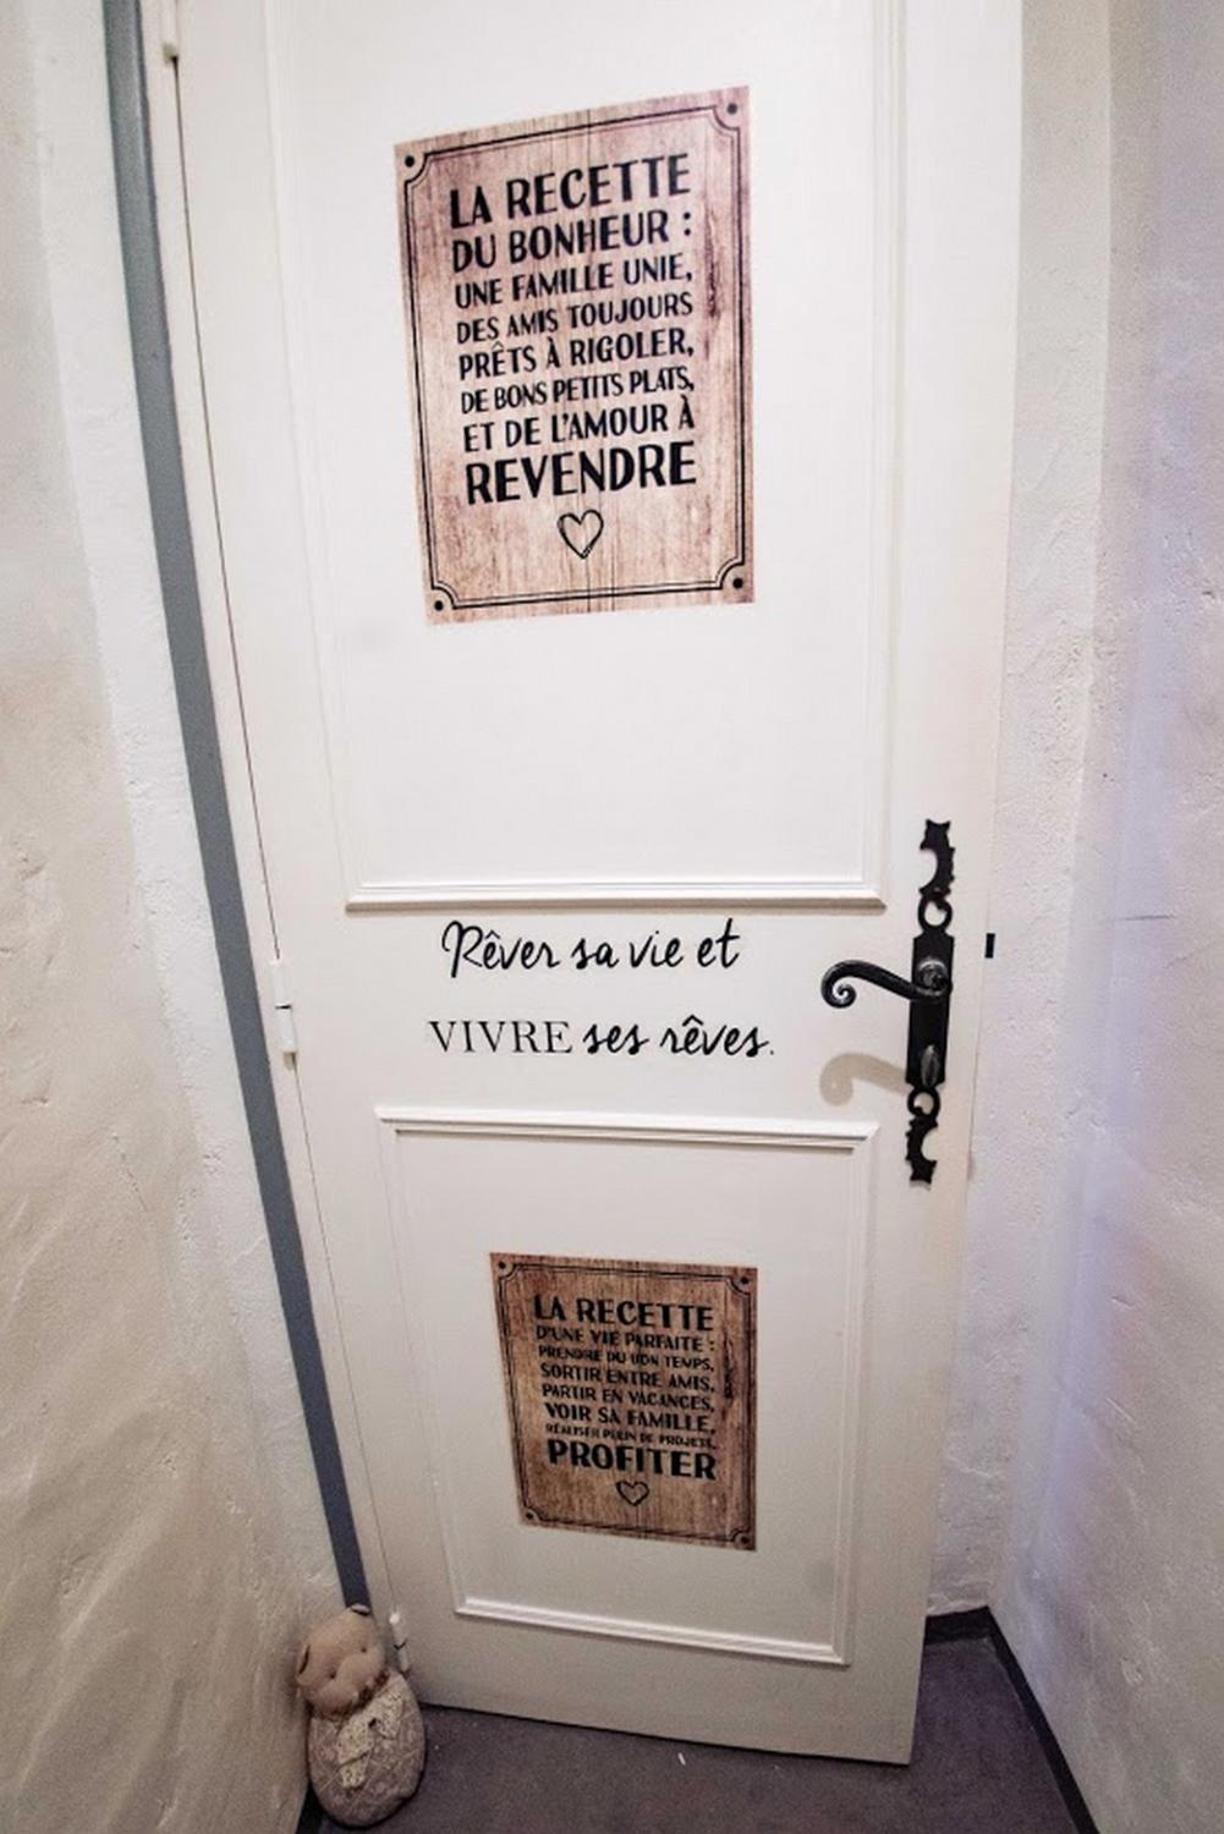 LA RECETTE
DU BONHEUR :
UNE FAMILLE UNIE,
DES AMIS TOUJOURS
PRÊTS À RIGOLER,
DE BONS PETITS PLATS,
ET DE L'AMOUR À
REVENDRE
Rêver sa vie et
VIVRE ses rêves.
LA RECETTE
D'UNE VIE PARFAITE :
PRENDRE DU BON TEMPS,
SORTIR ENTRE AMIS,
PARTIR EN VACANCES,
VOIR SA FAMILLE,
RÉALISER PLEIN DE PROJETS,
PROFITER